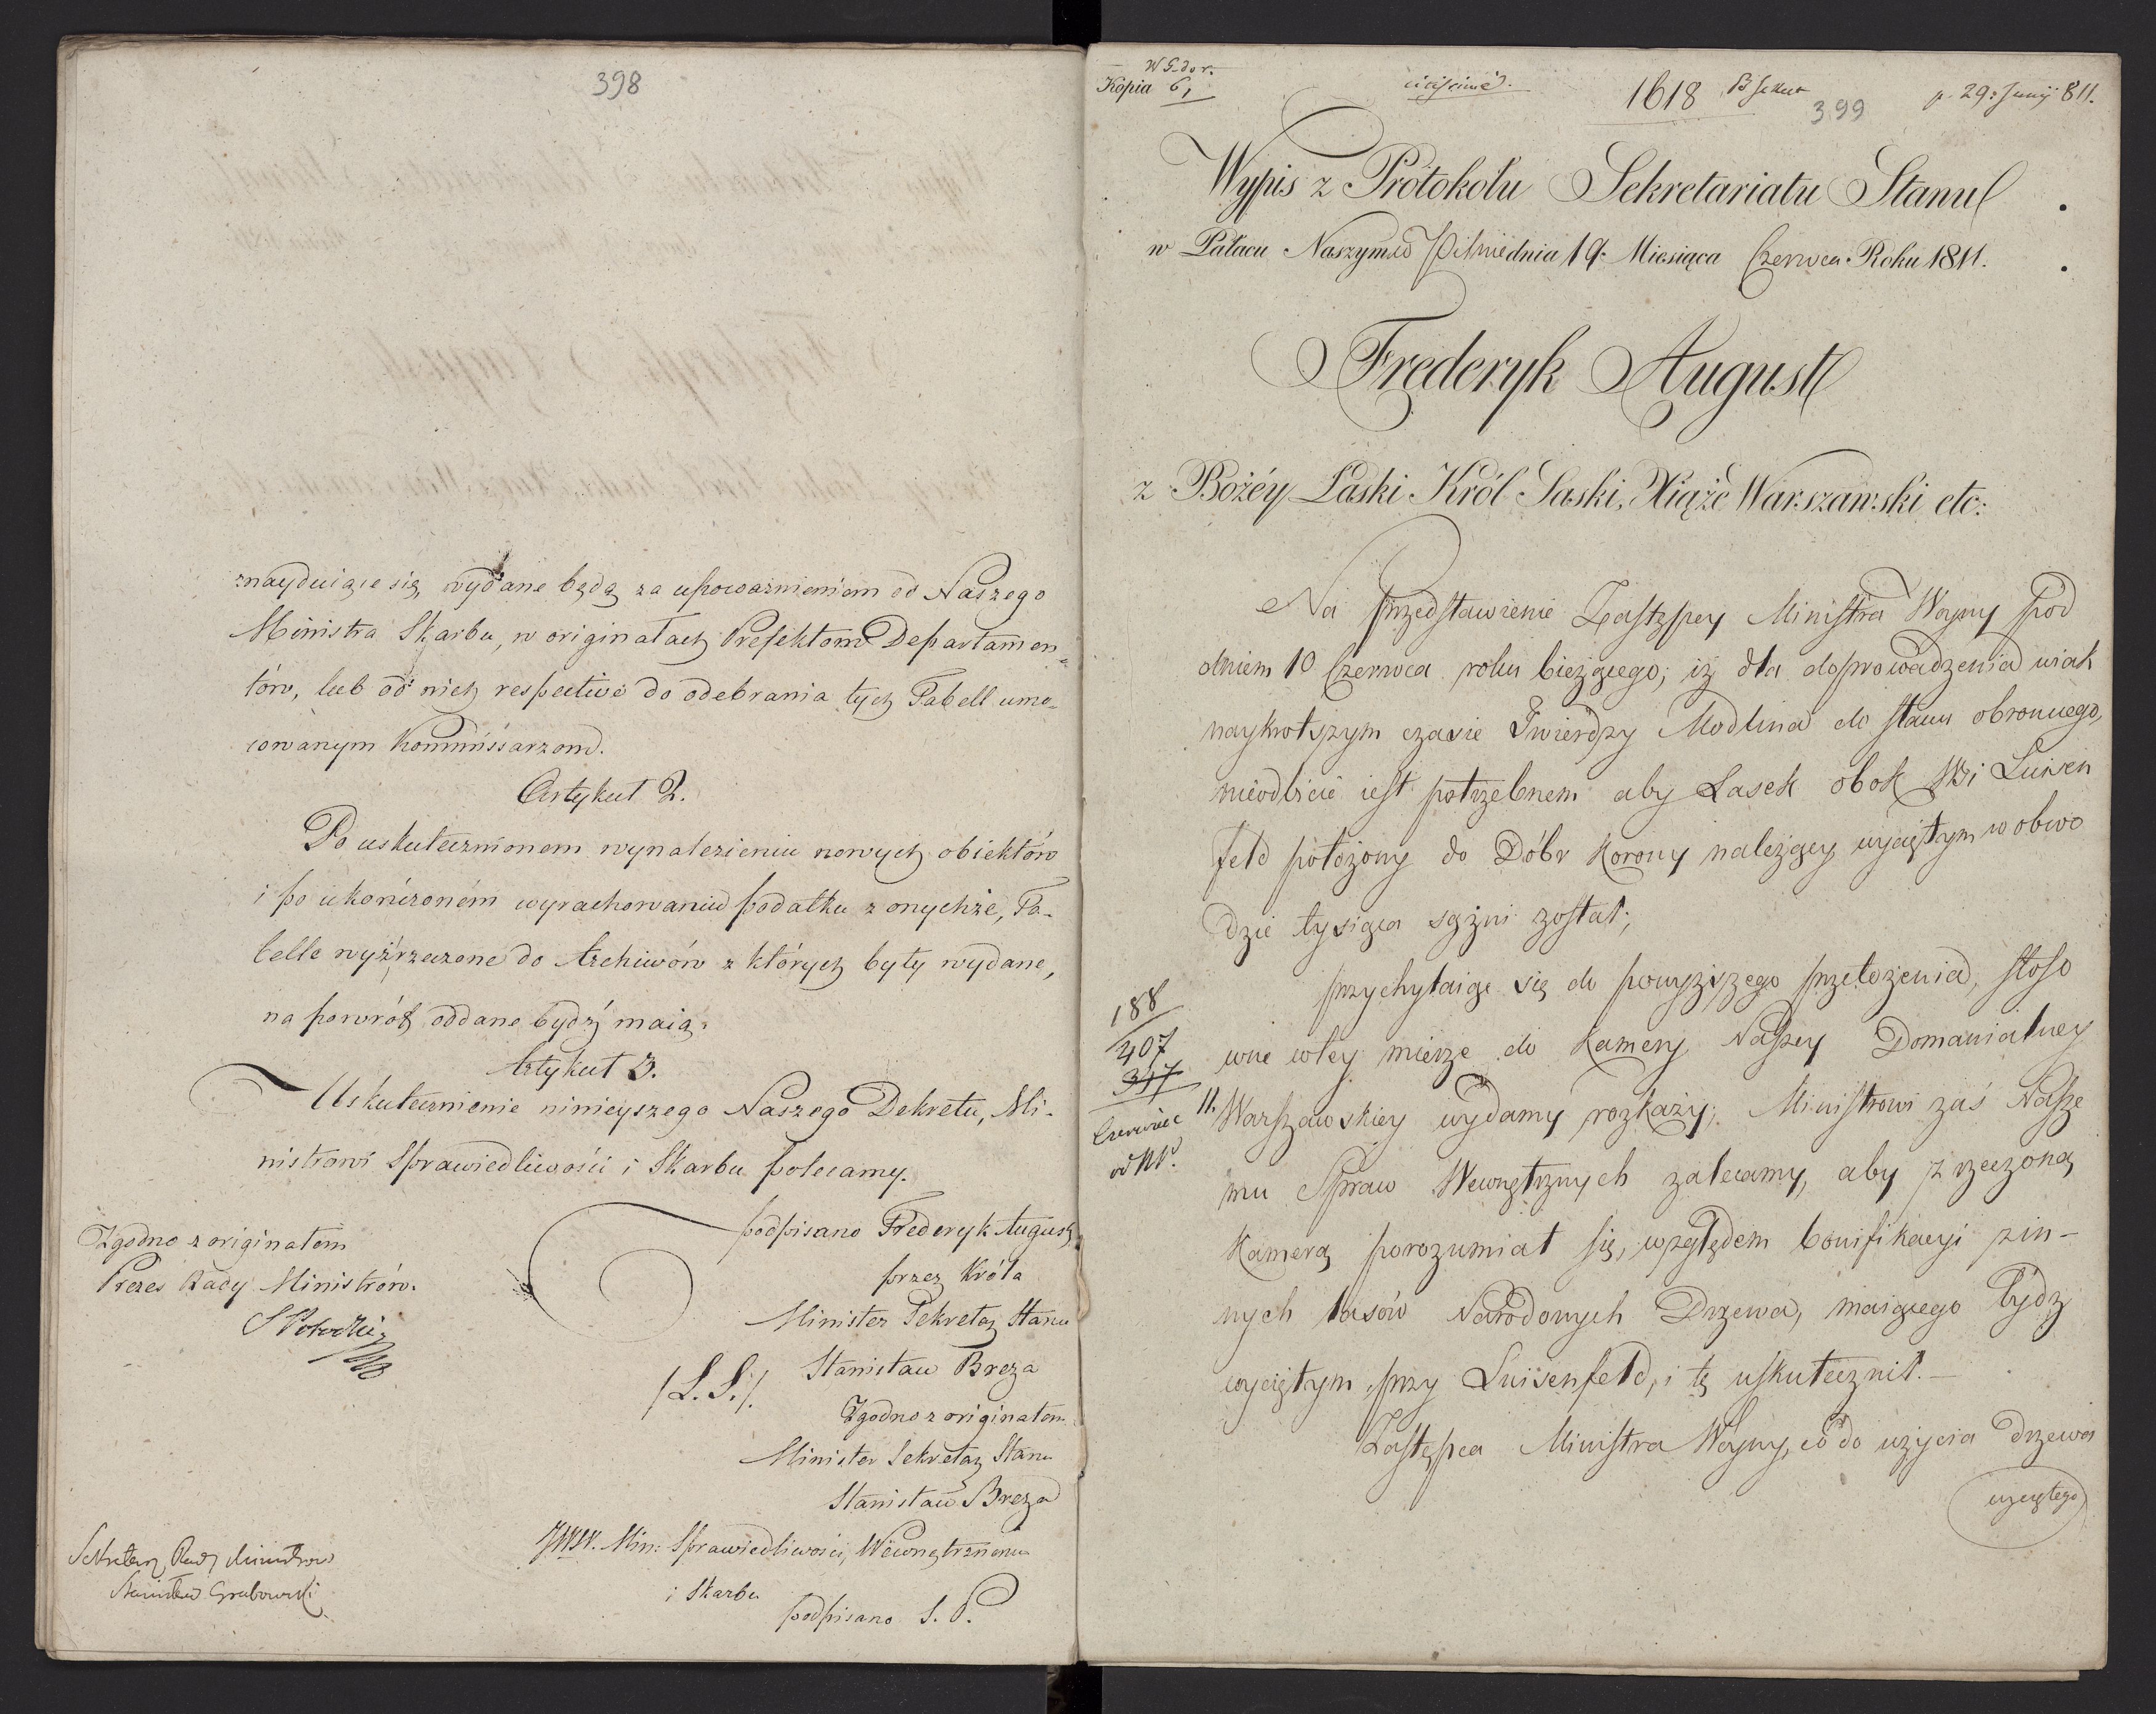 398
znayduiące się, wydane będą za upoważnieniem od Naszego
Ministra Skarbu, w originałach Prefektom Departamen=
tów, lub od nich respective do odebrania tych Tabell umo=
cowanym Kommissarzom.
Artykuł 2.
Po uskutecznionem wynalezieniu nowych obiektów
i po ukończoném wyrachowaniu podatku z onychże, Ta-
belle wyżrzeczone do Archiwów z których były wydane,
na powrót oddane bydź maią.
Artykuł 3.
Uskutecznienie ninieyszego Naszego Dekretu, Mi-
nistrowi Sprawiedliwości i Skarbu polecamy.
podpisano Frederyk August
przez Króla
Minister Sekretarz Stanu
/L.S./. Stanisław Breza
Zgodno z originałem
Minister Sekretarz Stanu
Stanisław Breza
Zgodno z originałem
Prezes Rady Ministrów.
JWW. Min: Sprawiedliwości, Wewnętrznemu
i Skarbu
podpisano S. P.
Sekretarz Rady Ministrow
Stanisław Grabowski
Kopia 6,
1618
399
p. 29: Junij 811.
Wypis z Protokołu Sekretariatu Stanu
w Pałacu Naszym w Pilnie dnia 19. Miesiąca Czerwca Roku 1811.
Frederyk August
z Bożéy Łaski Król Saski, Xiąże Warszawski etc:
Na przedstawienie Zastępcy Ministra Woyny pod
dniem 10 Czerwca roku bieżącego; iż dla doprowadzenia wiak
naykrotszym czasie Twierdzy Modlina do stanu obronnego,
nieodbicie iest potrzebnem aby Lasek obok Wsi Luisen
feld położony do Dóbr Korony należący wyciętym w obwo
dzie tysiąca sążni został;
przychylaiąc się do powyższego przełożenia, stoso
wne w tey mierze do Kamery Naszey Domanialney
Warszawskiey wydamy rozkazy; Ministrowi zaś Nasze
mu Spraw Wewnętrznych zalecamy, aby z rzeczoną
Kamerą porozumiał się, względem bonifikacyi z in-
nych lasów Narodowych Drzewa, maiącego bydz
wyciętym przy Luisenfeld, i tę uskutecznił.-
Zastępca Ministra Woyny, co do użycia drzewa
wyciętego
188
407
347
11.
Czerwiec